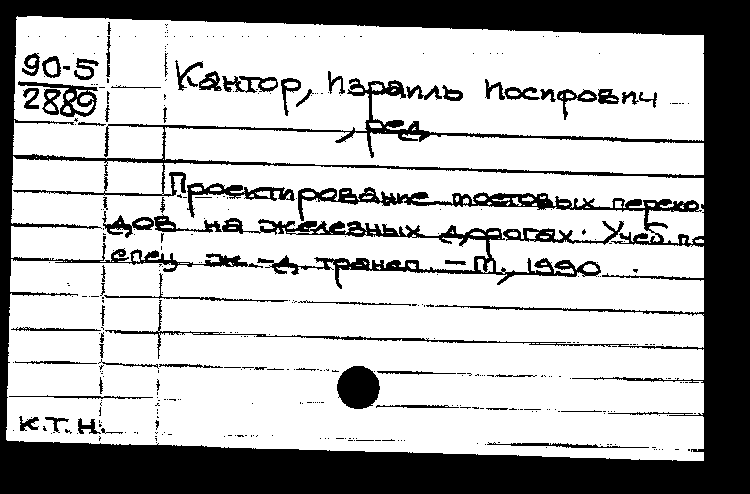 90-5
2889
Кантор, Израиль Иосифович
, ред.
Проектирование мостовых перехо-
дов на железных дорогах. Учеб. по
спец. ж.-д. трансп. – М., 1990.
к.т.н.